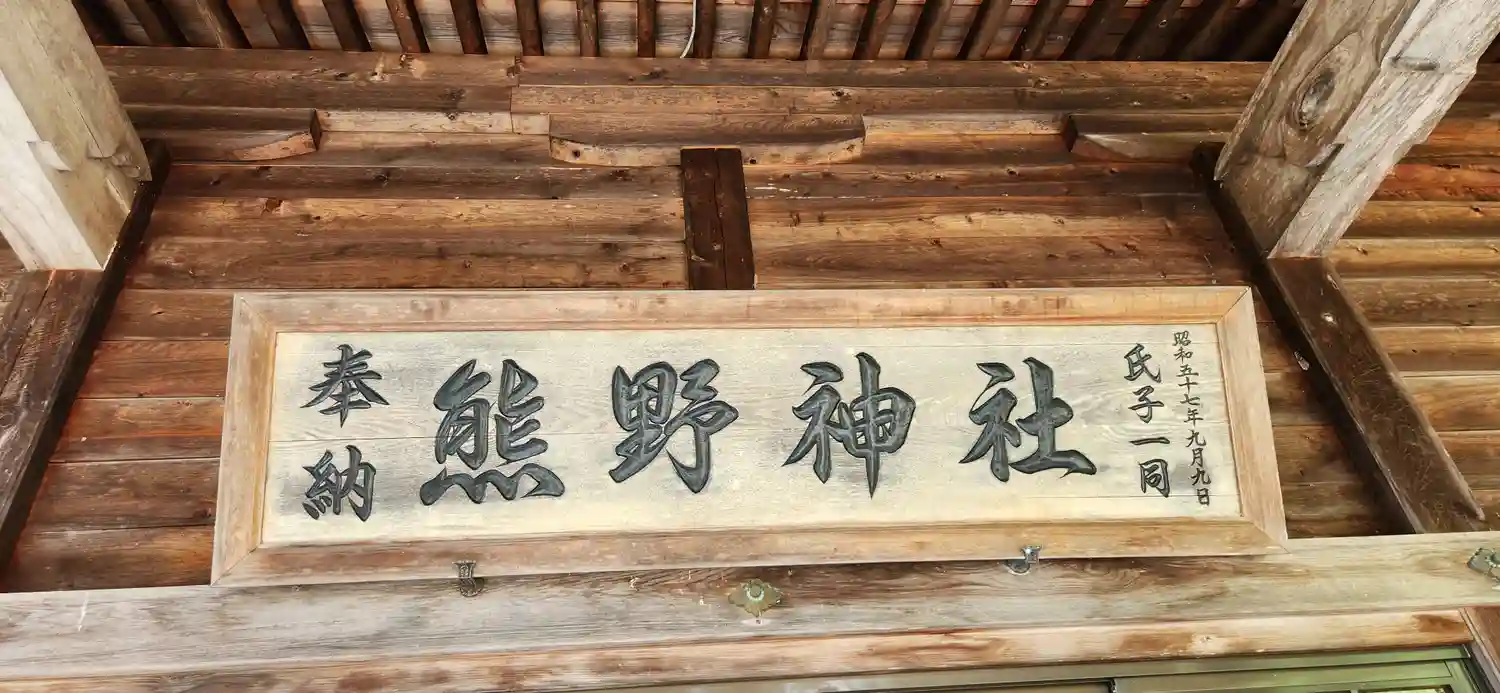 奉納
熊野神社
氏子一同
昭和五十七年九月九日